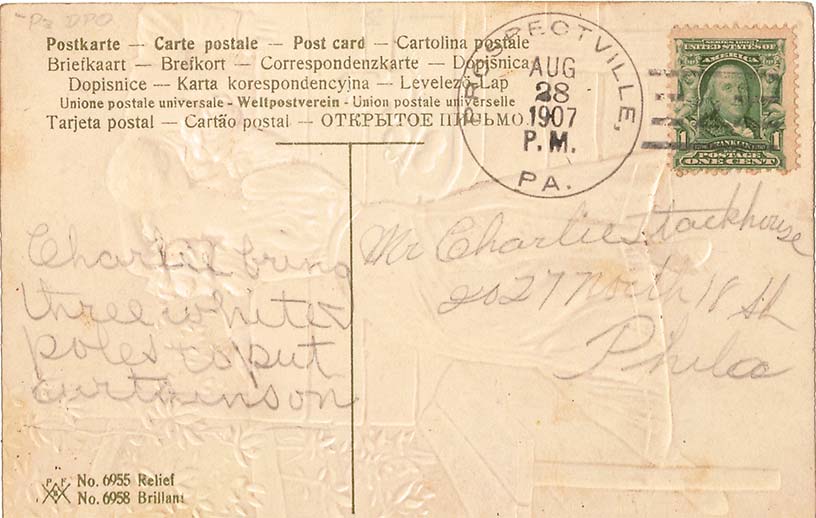 -Pa DPO
Postkarte — Carte postale — Post card — Cartolina postale
Briefkaart — Brefkort — Correspondenzkarte — Dopišnica
Dopisnice — Karta korespondencyjna — Levelező-Lap
Unione postale universale - Weltpostverein - Union postale universelle
Tarjeta postal — Cartão postal — ОТКРЫТОЕ ПИСЬМО.
PROSPECTVILLE,
AUG
28
1907
P. M.
PA.
SERIES 1902
UNITED STATES OF
AMERICA
FRANKLIN
1 1
POSTAGE
ONE CENT
Charlie bring
three white
poles to put
curtains on
Mr Charlie Stackhouse
2027 North 18 St
Phila
P F
B
No. 6955 Relief
No. 6958 Brillant